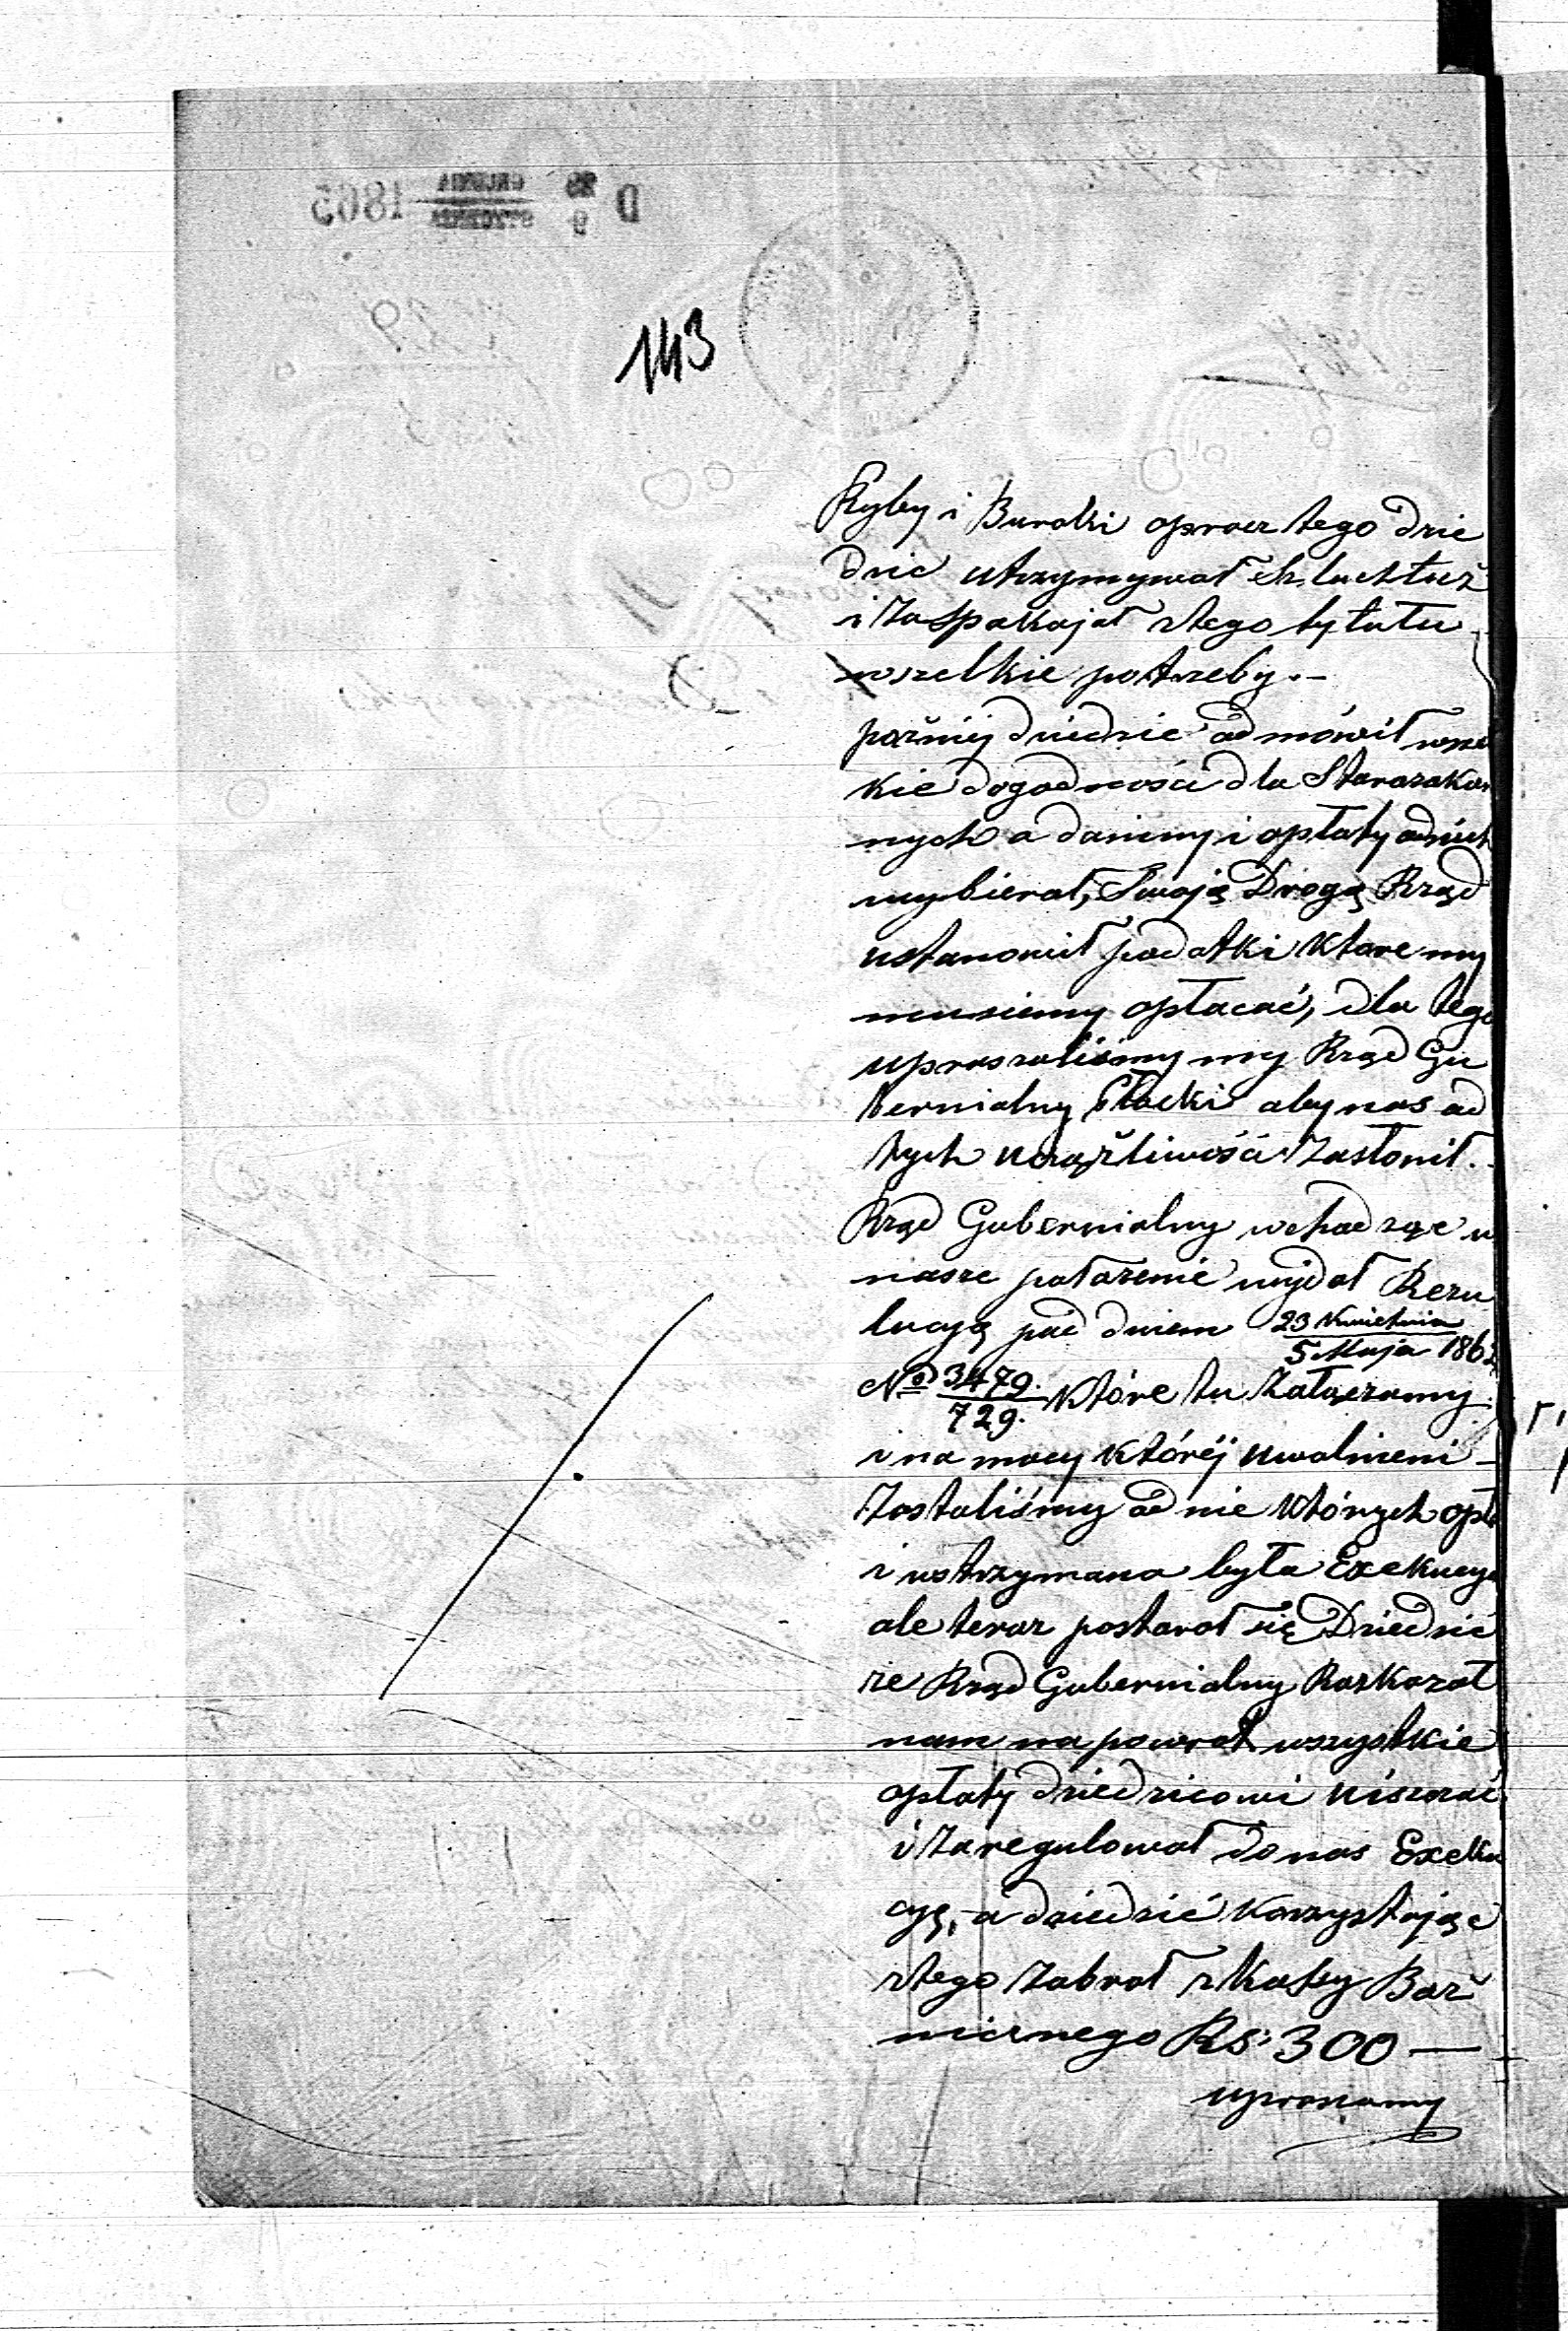 143
Ryby i Buraki oprocz tego drie
dric utrzymywał Szlachtuz
i Zaspakajał ztego tytułu
wszelkie potrzeby.–
pozniéj driedzic odmówił wsze
kie dogodności dla Starozakon
nych a daniny i opłaty od nich
wybierał, Swoją Drogą Rząd
ustanowił podatki które my
musiemy opłacać, dla tego
upraszaliśmy my Rząd Gu
bernialny Płocki aby nas od
tych uciążliwości Zasłonił.
Rząd Gubernialny wchodząc w
nasze położenie wydał Rezu
lucyą pod dniem 23 Kwietnia
5 Maja 186
No 3479. które tu Załączamy
729.
i na mocy któréj uwolnieni –
Zostaliśmy od nie których opła
i wstrzymana była Exekucya
ale teraz postarał się Dziedzic
że Rząd Gubernialny Rozkazał
nam na powrót wszystkie
opłaty dziedzicowi uiszczać
i Zaregulował do nas Exeku
cyą, a dziedzić korzystając
ztego Zabrał z Kassy Boż
nicznego Rs. 300 —
upraszamy